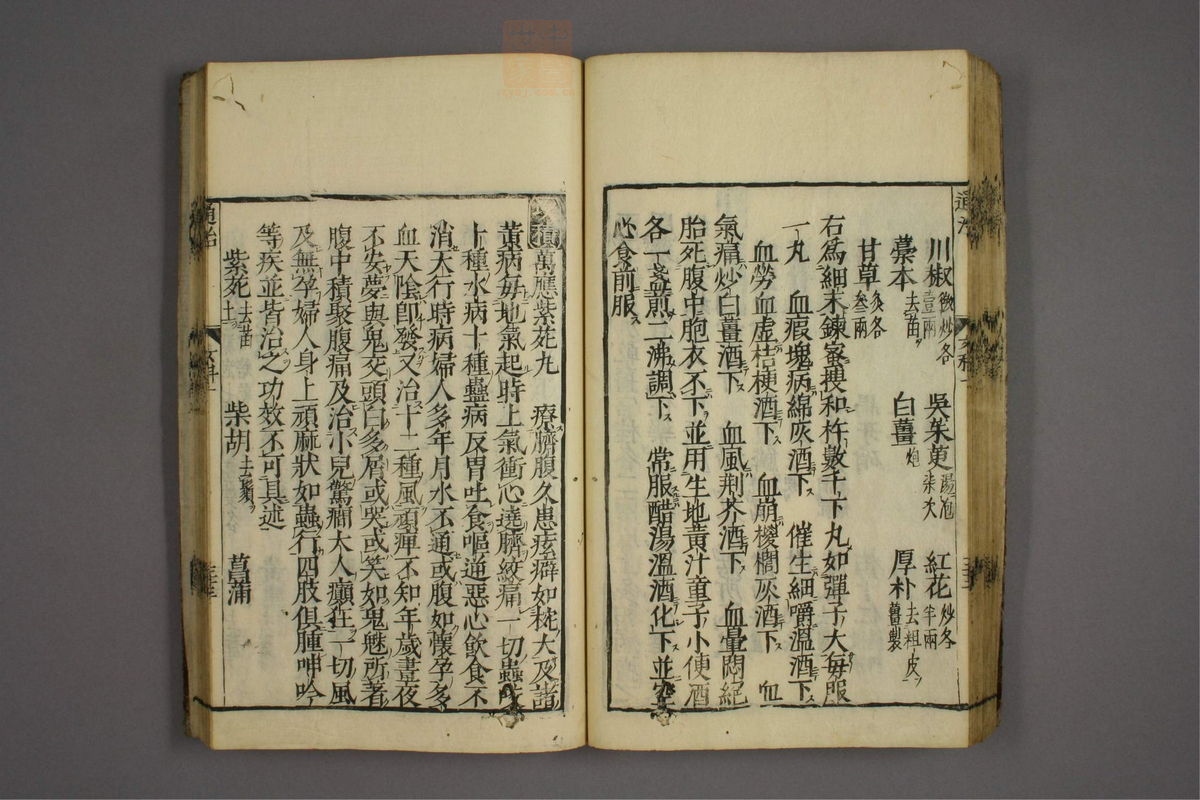 川椒 微炒各壹兩 吳茱萸 湯泡柒次 紅花 炒各半兩
藁本 去苗 白薑 炮 厚朴 去粗皮薑製
甘草 炙各叁兩
右為細末鍊蜜搜和杵數千下丸如彈子大每服
一丸 血瘕塊病綿灰酒下 催生細嚼溫酒下
血勞血虛桔梗酒下 血崩椶櫚灰酒下 血
氣痛炒白薑酒下 血風荊芥酒下 血暈悶絕
胎死腹中胞衣不下並用生地黃汁童子小便酒
各一盞煎二沸調下 常服醋湯溫酒化下並空
心食前服
萬應紫菀丸 療臍腹久患痃癖如椀大及諸
黃病每地氣起時上氣衝心遶臍絞痛一切蟲咬
十種水病十種蠱病反胃吐食嘔逆惡心飲食不
消天行時病婦人多年月水不通或腹如懷孕多
血天陰即發又治十二種風頑痺不知年歲晝夜
不安夢與鬼交頭白多屑或哭或笑如鬼魅所著
腹中積聚腹痛及治小兒驚癎大人癲狂一切風
及無孕婦人身上頑麻狀如蟲行四肢俱腫呻吟
等疾並皆治之功效不可具述
紫菀 去苗土 柴胡 去鬚 菖蒲
通治